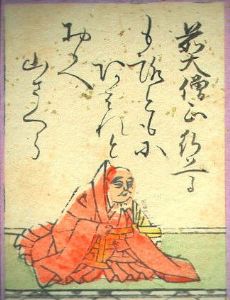 前大僧正行尊
も路とも尓
あはれと
おもへ
山さくら